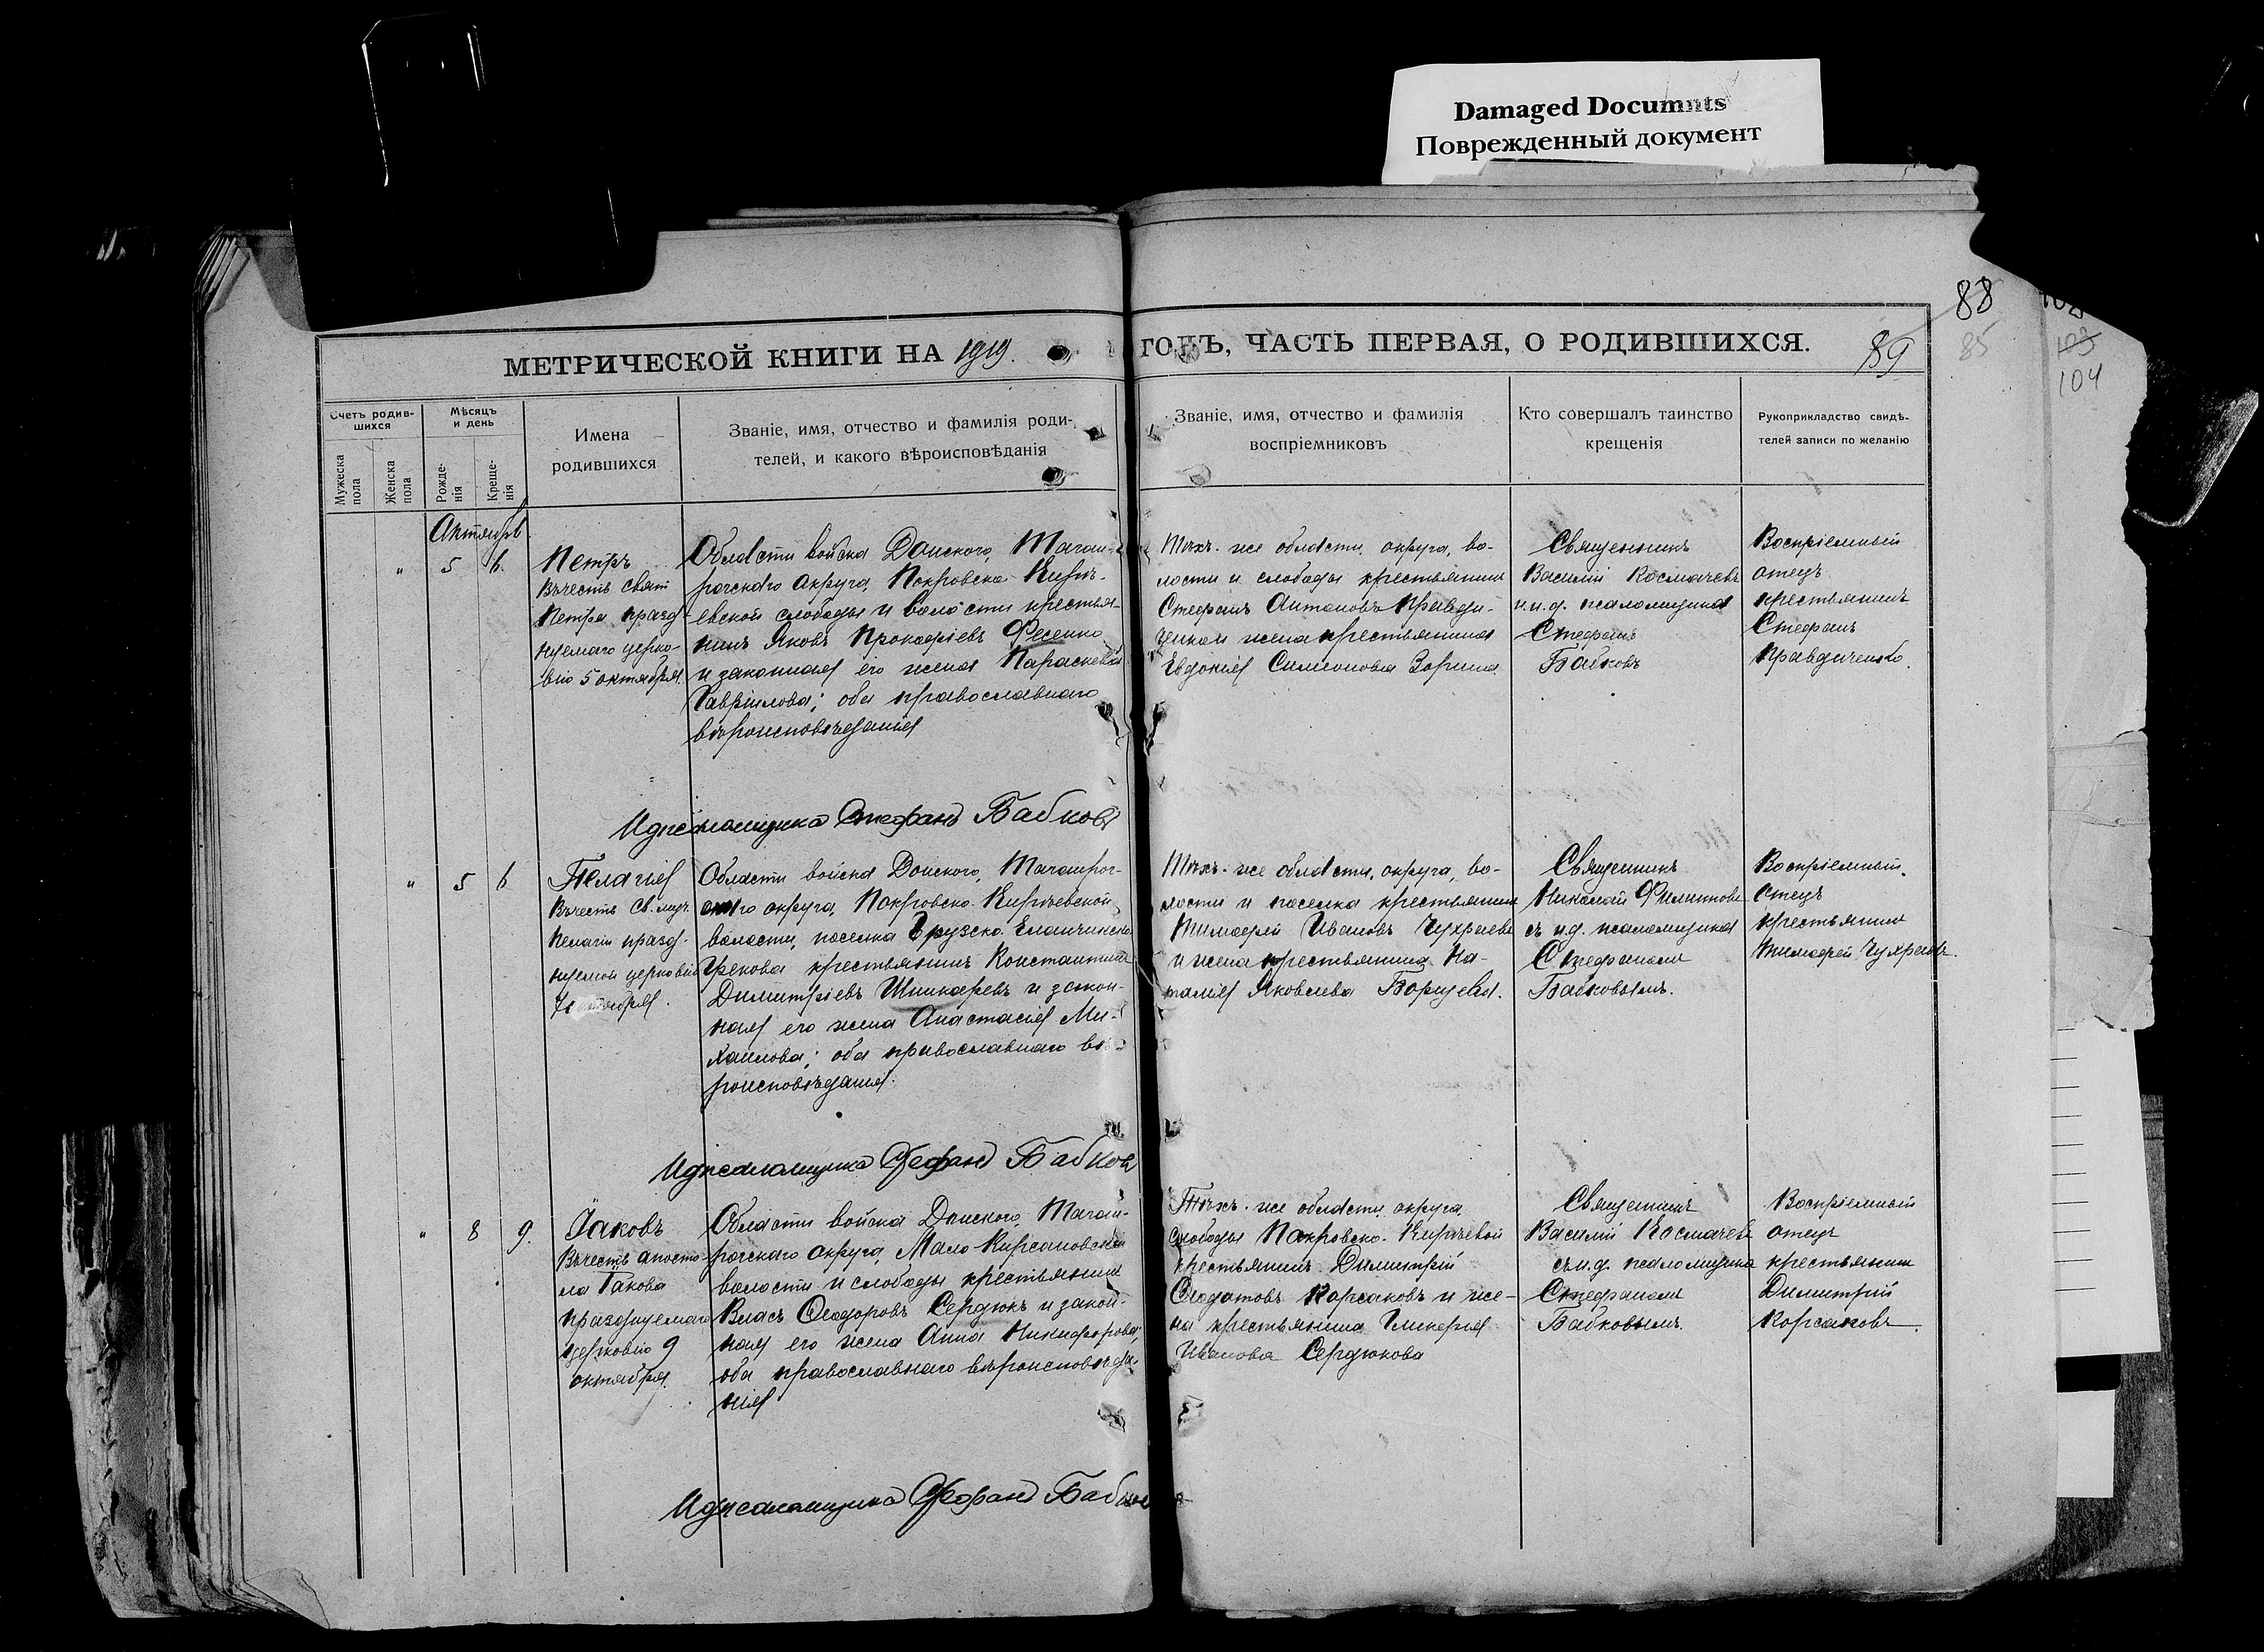 Damaged Documnts
Поврежденный документ
88
85
103
104
МЕТРИЧЕСКОЙ КНИГИ НА 1919.
ГОДЪ, ЧАСТЬ ПЕРВАЯ, О РОДИВШИХСЯ.
89
Счетъ родив-
шихся
Мужеска
пола
Женска
пола
Мѣсяцъ
и день
Рожде-
нія
Креще-
нія
Имена
родившихся
Званіе, имя, отчество и фамилія роди-
телей, и какого вѣроисповѣданія
Званіе, имя, отчество и фамилія
воспріемниковъ
Кто совершалъ таинство
крещенія
Рукоприкладство свидѣ-
телей записи по желанію
Октябрь
" 5 6.
Петръ
Въ честь свят
Петра празд-
нуемаго церко-
вію 5 октября.
Области войска Донского, Таган-
рогскаго округа, Покровско-Кирѣ-
евской слободы и волости крестья-
нинъ Яковъ Прокофіевъ Фесенко
и законная его жена Параскева
Гавріилова; оба православнаго
вѣроисповѣданія
Тѣхъ-же области, округа, во-
лости и слободы крестьянинъ
Стефанъ Антоновъ Правди-
ченко и жена крестьянина
Евдокія Симеонова Зорина.
Священникъ
Василій Космачевъ
и.д. псаломщика
Стефанъ
Бабковъ
Воспріемный
отецъ
крестьянинъ
Стефанъ
Правдиченко.
И д псаломщика Стефанъ Бабковъ
" 5 6
Пелагія
Въ честь Св. муч.
Пелагіи празд-
нуемой церковію
7 октября.
Области войска Донского, Таганрог-
скаго округа, Покровско-Кирѣевской
волости, поселка Грузско-Еланчинско
Грекова крестьянинъ Константинъ
Димитріевъ Шинкаревъ и закон-
ная его жена Анастасія Ми-
хаилова; оба православнаго вѣ-
роисповѣданія.
Тѣхъ-же области, округа, во-
лости и поселка крестьянинъ
Тимофей Ивановъ Чухраевъ
и жена крестьянина На-
талія Яковлева Борщева.
Священникъ
Николай Филиппов
съ и.д. псаломщика
Стефаномъ
Бабковымъ.
Воспріемный
Отецъ
крестьянинъ
Тимофей Чухраевъ.
И д псаломщика Стефанъ Бабковъ
" 8 9.
Іаковъ
Въ честь апосто-
ла Іакова
празднуемаго
церковію 9
октября.
Области войска Донского, Таган-
рогскаго округа, Мало Кирсановской
волости и слободы крестьянинъ
Власъ Ѳеодоровъ Сердюкъ и закон-
ная его жена Анна Никифорова;
оба православнаго вѣроисповѣда-
нія
Тѣхъ-же области, округа,
слободы Покровско-Кирѣевой
крестьянинъ Димитрій
Ѳеодотовъ Корсаковъ и же-
на крестьянина Гликерія
Иванова Сердюкова
Священникъ
Василій Космачевъ
съ и.д. псаломщика
Стефаномъ
Бабковымъ.
Воспріемный
отецъ
крестьянинъ
Димитрій
Корсаковъ.
И д псаломщика Стефанъ Бабковъ